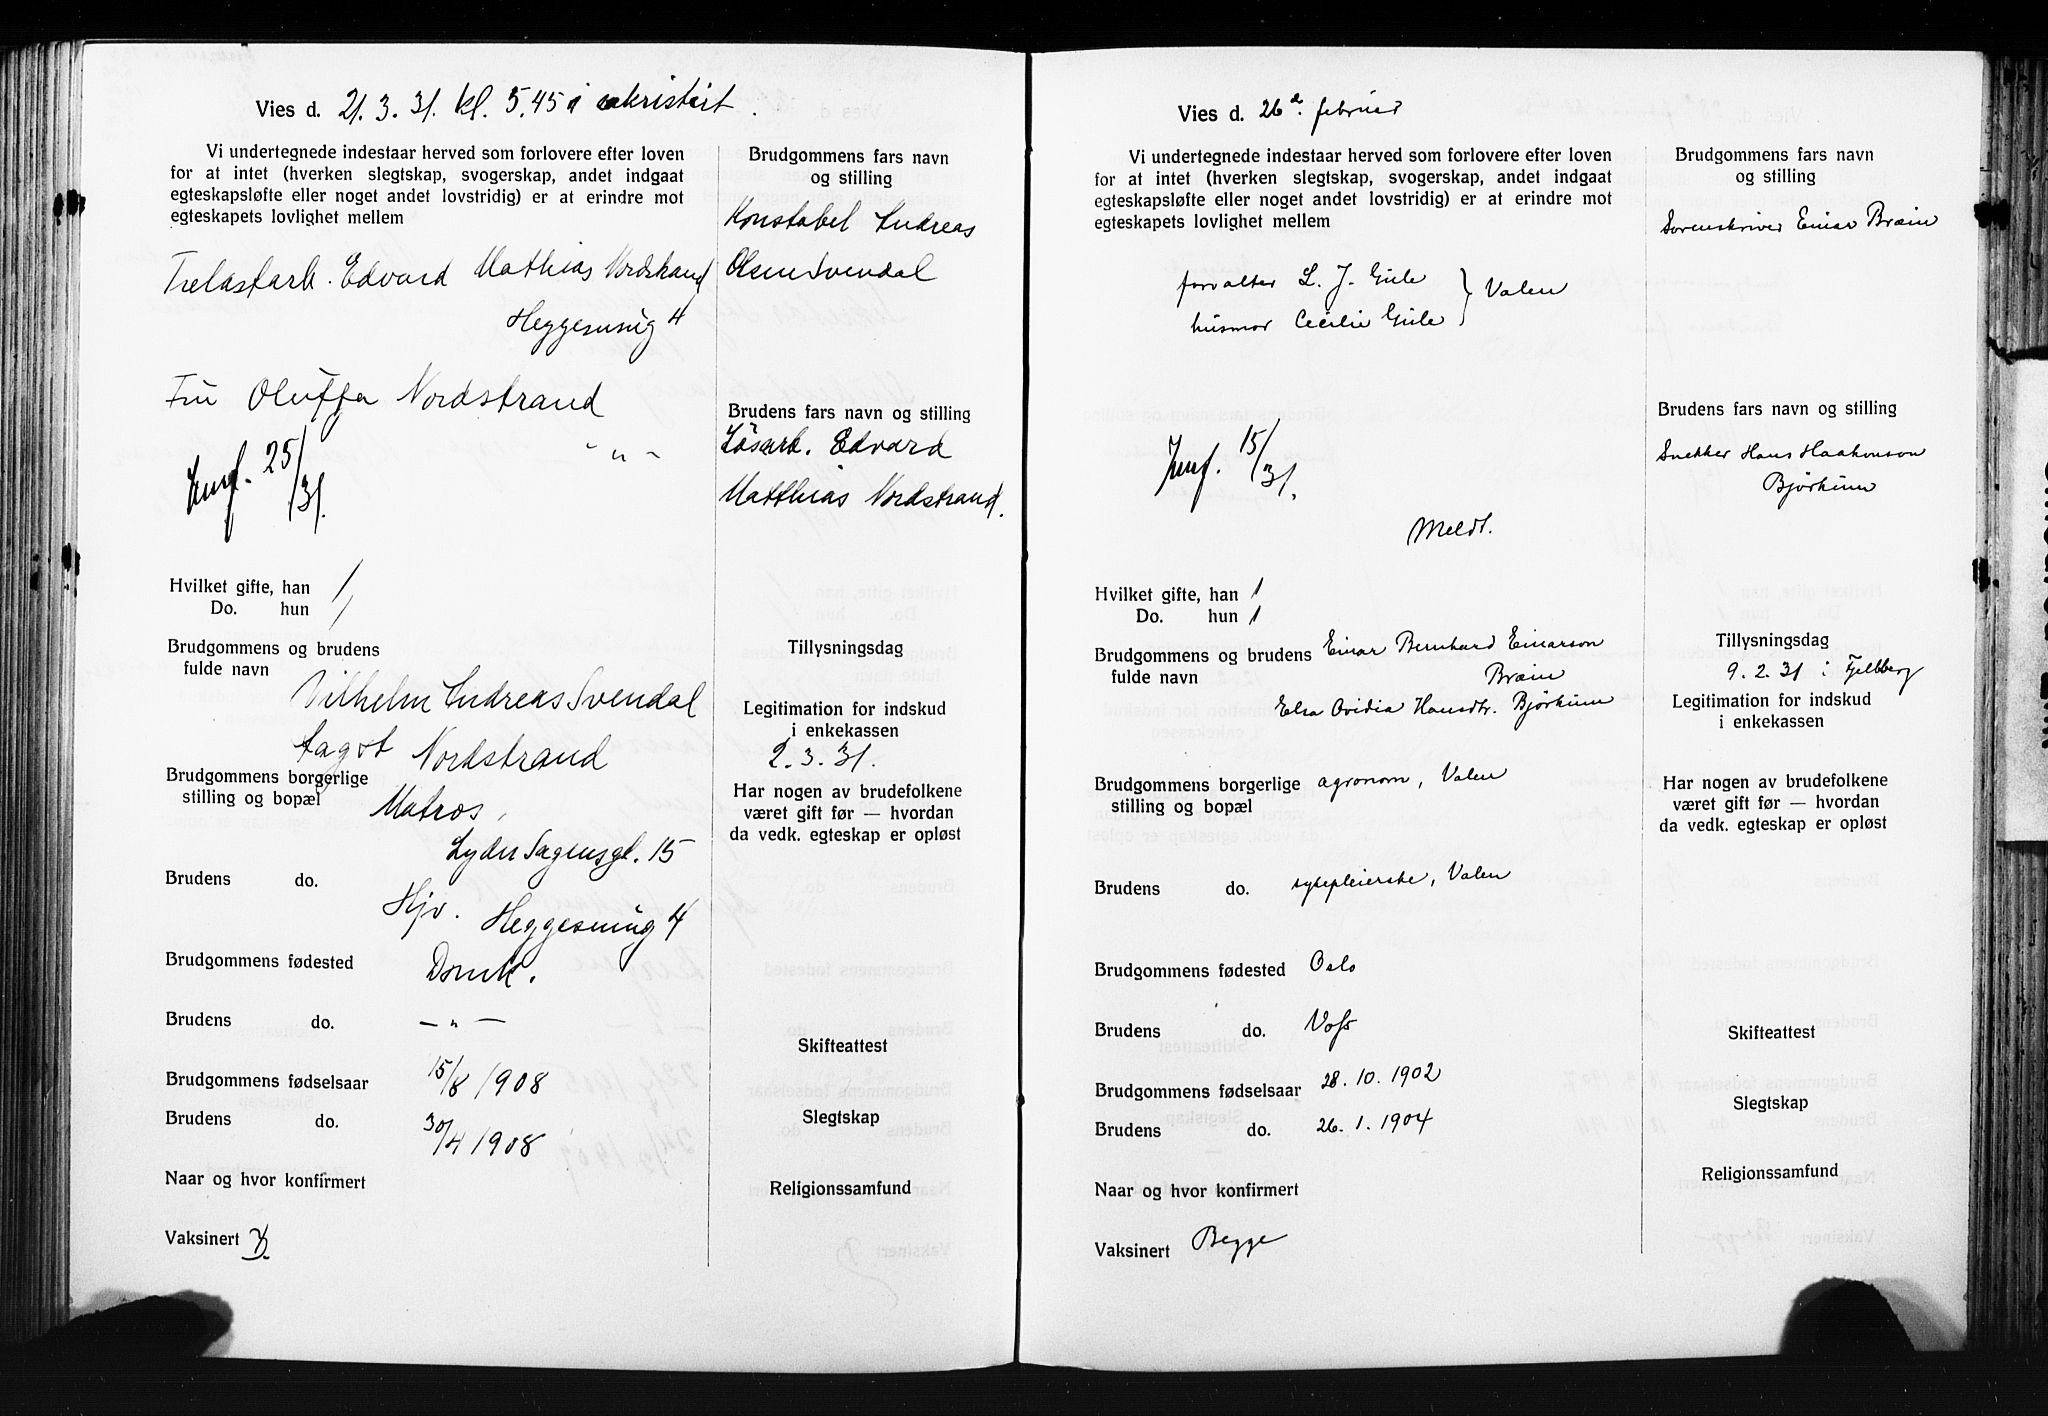 Vies d. 21.3.31. kl. 5.45 i sakristiet.
Vi undertegnede indestaar herved som forlovere efter loven
for at intet (hverken slegtskap, svogerskap, andet indgaat
egteskapsløfte eller noget andet lovstridig) er at erindre mot
egteskapets lovlighet mellem
Trelastarb. Edvard Mathias Nordstrand
Heggesmug 4
Fru Oluffa Nordstrand
" " -
Jmf. 25/31.
Brudgommens fars navn
og stilling
Konstabel Andreas
Olsen Svendal
Brudens fars navn og stilling
Løsarb. Edvard
Matthias Nordstrand.
Hvilket gifte, han 1
Do. hun 1
Brudgommens og brudens
fulde navn
Vilhelm Andreas Svendal
Nordstrand
Brudgommens borgerlige
stilling og bopæl
Matros,
Lyder Sagensgt. 15
Brudens do.
Hjv. Heggesmug 4
Brudgommens fødested Domk.
Brudens do. - " -
Brudgommens fødselsaar 15/8 1908
Brudens do. 30/4 1908
Naar og hvor konfirmert
Vaksinert
Tillysningsdag
Legitimation for indskud
i enkekassen
2.3.31.
Har nogen av brudefolkene
været gift før — hvordan
da vedk. egteskap er opløst
Skifteattest
Slegtskap
Religionssamfund
Vies d. 26de februar
Vi undertegnede indestaar herved som forlovere efter loven
for at intet (hverken slegtskap, svogerskap, andet indgaat
egteskapsløfte eller noget andet lovstridig) er at erindre mot
egteskapets lovlighet mellem
forvalter L. J. Gule } Valen
husmor Cecilie Gule
Jmf. 15/31.
Meldt.
Brudgommens fars navn
og stilling
Sorenskriver Einar Bræin
Brudens fars navn og stilling
Snekker Hans Haakonson
Bjørkum
Hvilket gifte, han 1
Do. hun 1
Brudgommens og brudens Einar Bernhard Einarson
fulde navn Bræin
Elsa Ovidia Hansdtr. Bjørkum
Brudgommens borgerlige agronom, Valen
stilling og bopæl
Brudens do. sykepleierske, Valen
Brudgommens fødested Oslo
Brudens do. Voss
Brudgommens fødselsaar 28.10.1902
Brudens do. 26.1.1904
Naar og hvor konfirmert
Vaksinert Begge
Tillysningsdag
9.2.31 i Fjelberg
Legitimation for indskud
i enkekassen
Har nogen av brudefolkene
været gift før — hvordan
da vedk. egteskap er opløst
Skifteattest
Slegtskap
Religionssamfund